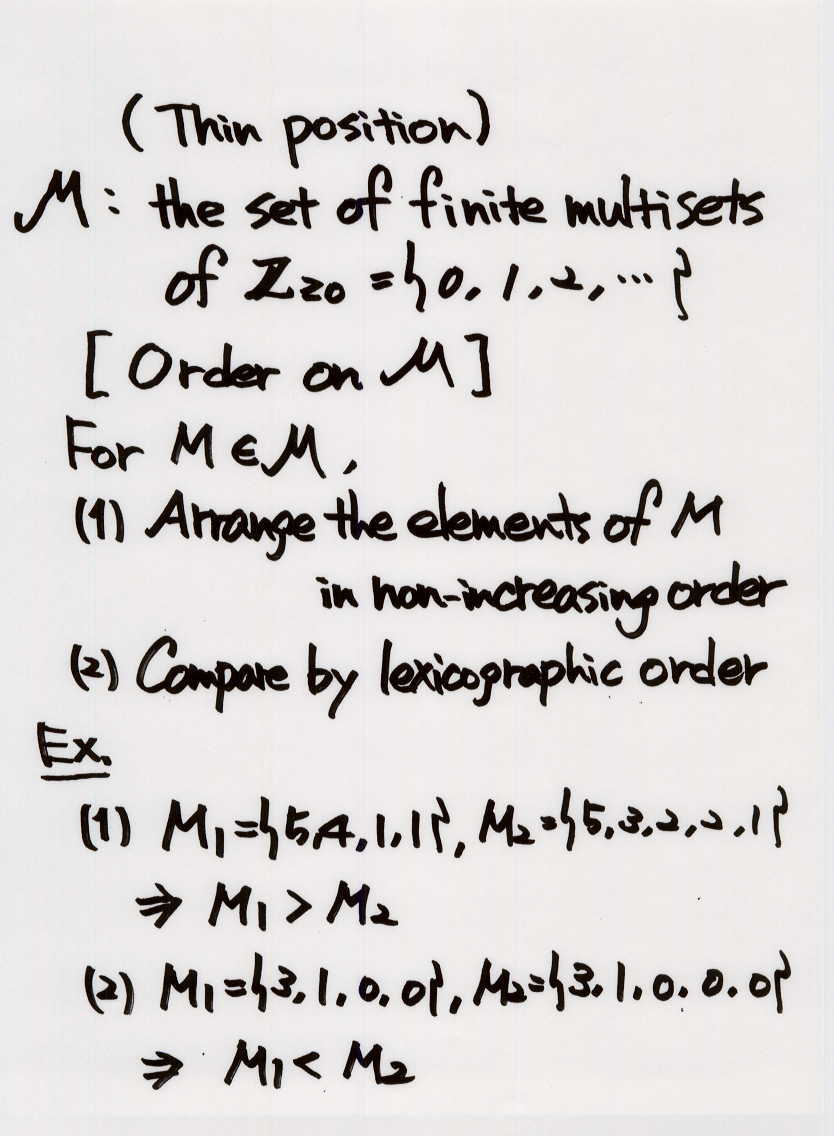 (Thin position)
ℳ: the set of finite multisets
of ℤ≥0 = {0, 1, 2, ⋯}
[Order on ℳ]
For M ∈ ℳ,
(1) Arrange the elements of M
in non-increasing order
(2) Compare by lexicographic order
Ex.
(1) M₁={5,4,1,1}, M₂={5,3,2,2,1}
⇒ M₁ > M₂
(2) M₁={3,1,0,0}, M₂={3,1,0,0,0}
⇒ M₁ < M₂